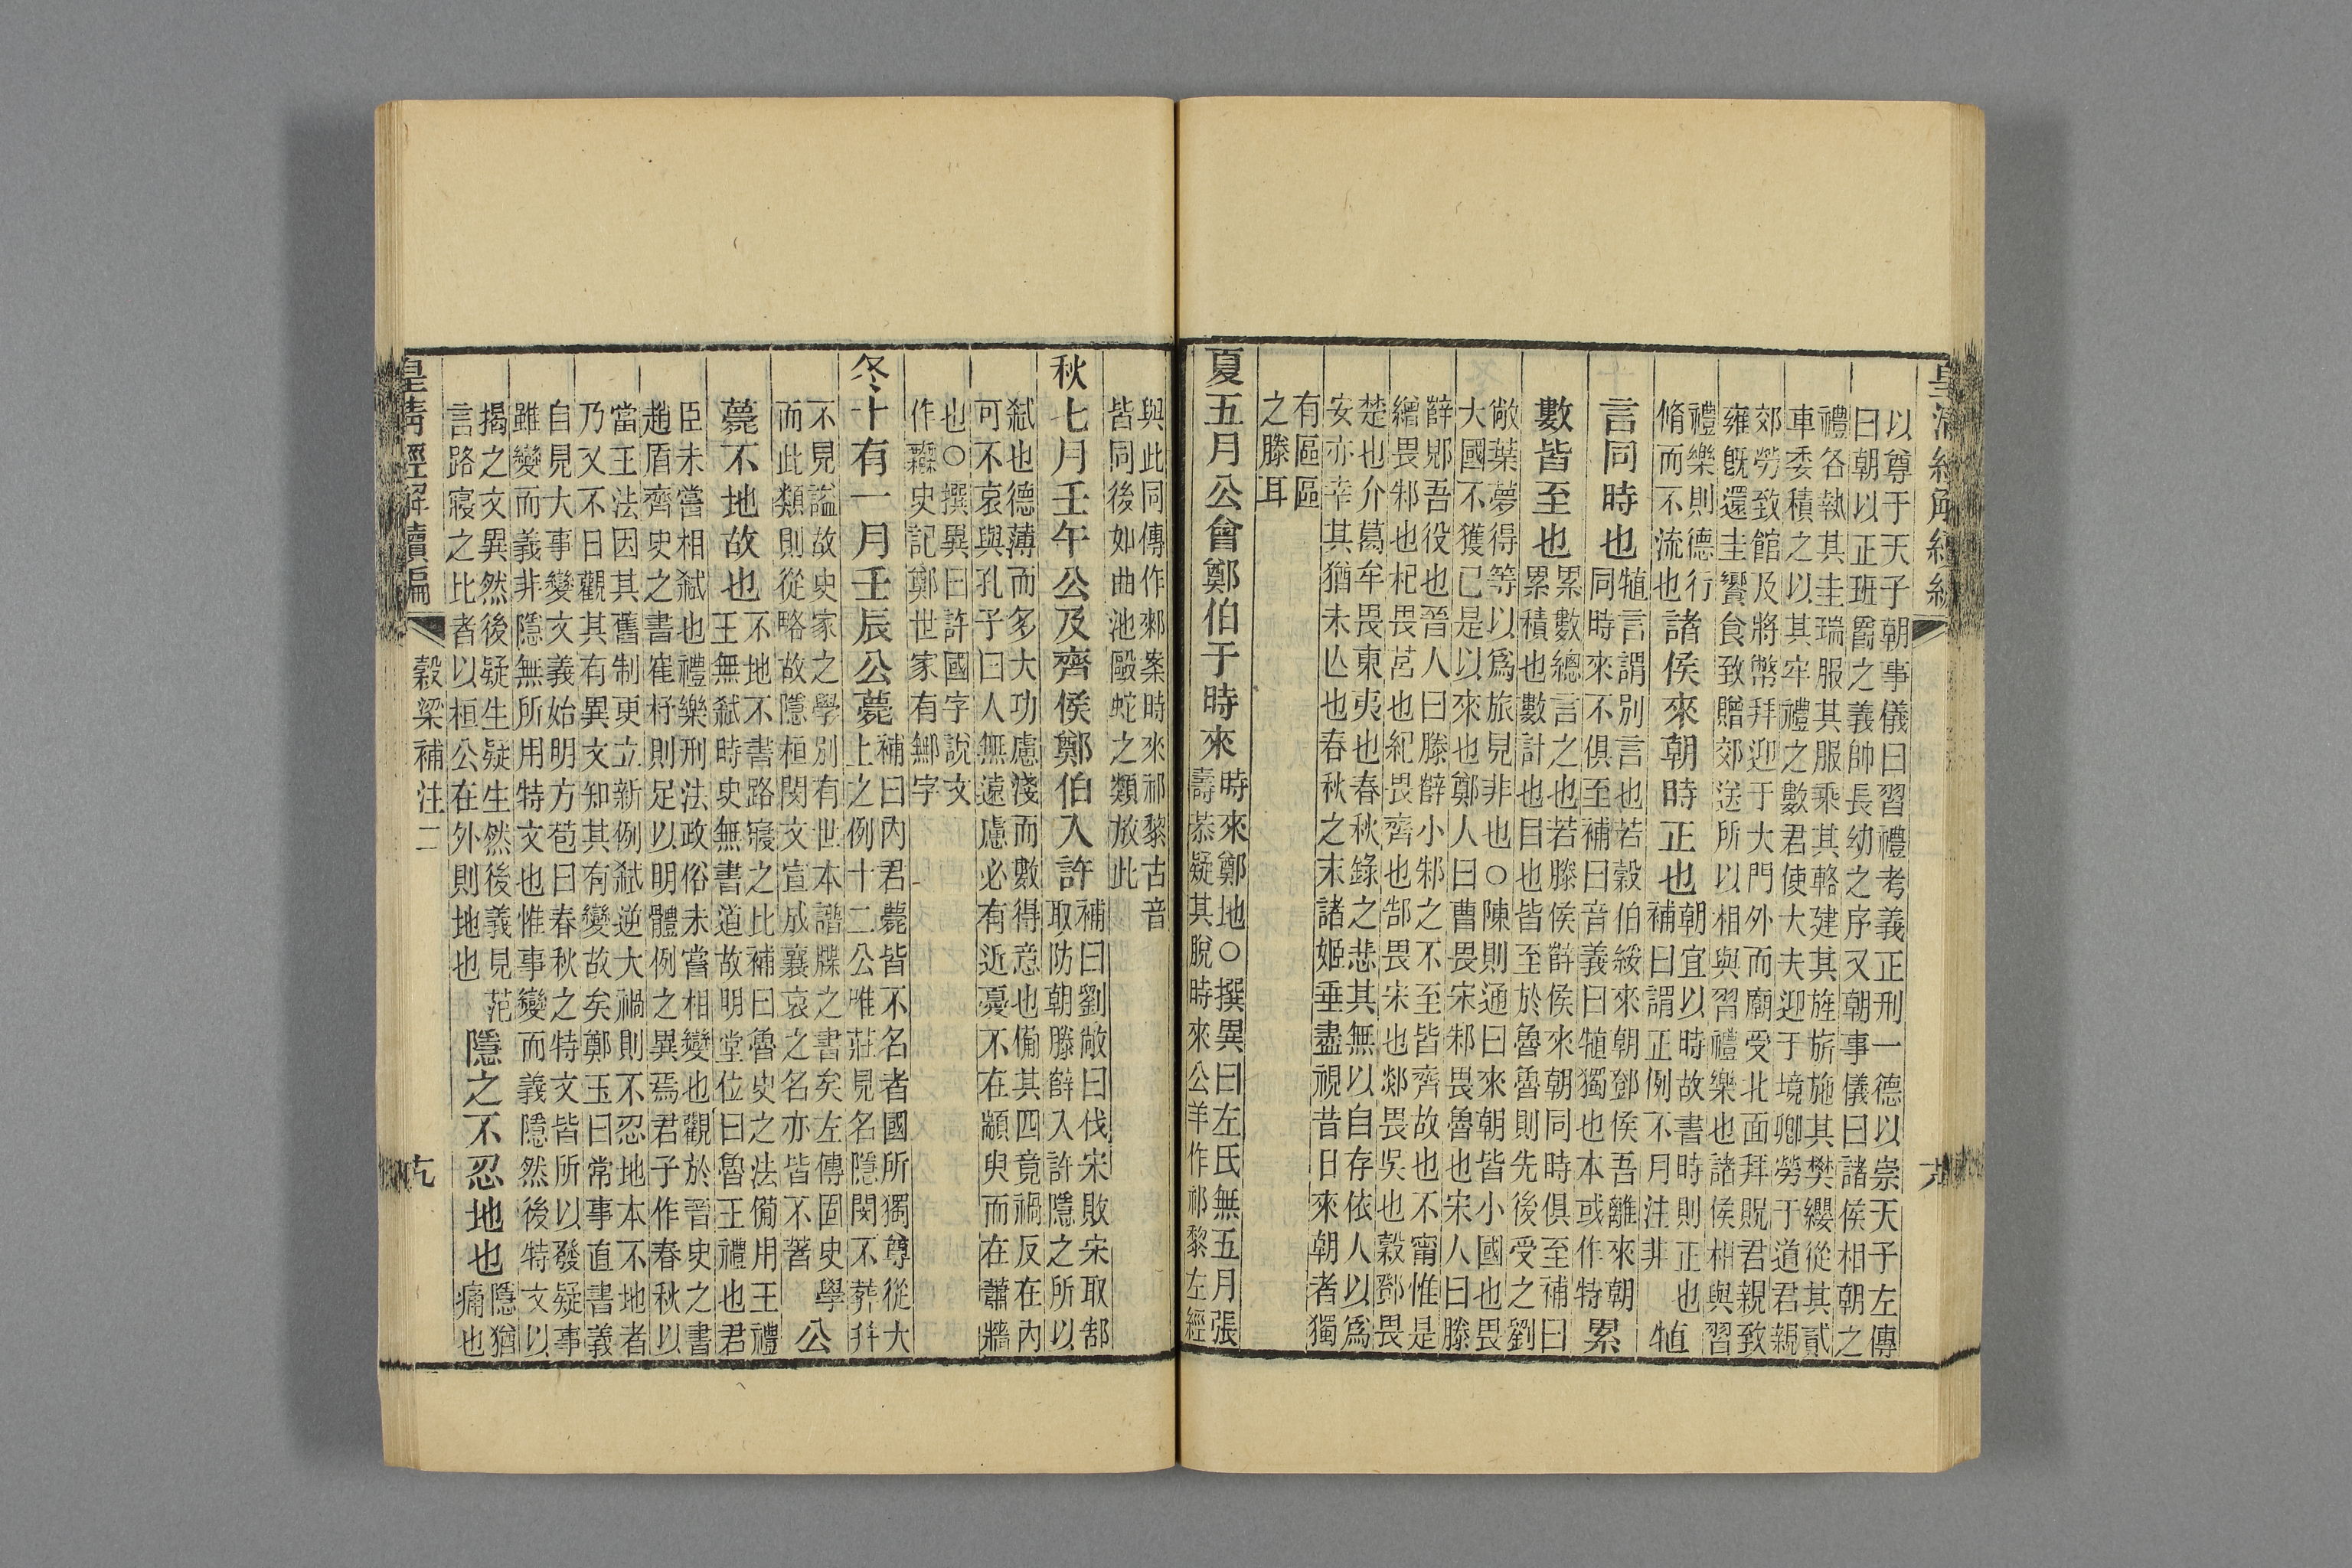 皇清經解續編
以尊于天子朝事儀曰習禮考義正刑一德以崇天子左傳
曰朝以正班爵之義帥長幼之序又朝事儀曰諸侯相朝之
禮各執其圭瑞服其服乘其輅建其旌旂施其樊纓從其貳
車委積之以其牢禮之數君使大夫迎于境卿勞于道君親
郊勞致館及將幣拜迎于大門外而廟受北面拜貺君親致
雍旣還圭饗食致贈郊送所以相與習禮樂也諸侯相與習
禮樂則德行
脩而不流也
諸侯來朝時正也
朝宜以時故書時則正也
補曰謂正例不月注非
犆
言同時也
犆言謂別言也若穀伯綏來朝鄧侯吾離來朝
同時來不俱至補曰音義曰犆獨也本或作特
累
數皆至也
累數總言之也若滕侯薛侯來朝同時俱至補曰
累積也數計也目也皆至於魯魯則先後受之劉
敞葉夢得等以爲旅見非也○陳則通曰來朝皆小國也畏
大國不獲已是以來也鄭人曰曹畏宋邾畏魯也宋人曰滕
薛郳吾役也晉人曰滕薛小邾之不至皆齊故也不甯惟是
繒畏邾也杞畏莒也紀畏齊也郜畏宋也郯畏吳也穀鄧畏
楚也介葛牟畏東夷也春秋錄之悲其無以自存依人以爲
安亦幸其猶未亾也春秋之末諸姬垂盡視昔日來朝者獨
有區區
之滕耳
夏五月公會鄭伯于時來
時來鄭地○撰異曰左氏無五月張
壽恭疑其脫時來公羊作祁黎左經
與此同傳作郲案時來祁黎古音
皆同後如曲池毆蛇之類放此
秋七月壬午公及齊侯鄭伯入許
補曰劉敞曰伐宋敗宋取郜
取防朝滕薛入許隱之所以
弑也德薄而多大功慮淺而數得意也備其四竟禍反在內
可不哀與孔子曰人無遠慮必有近憂不在顓臾而在蕭牆
也○撰異曰許國字說文
作鄦史記鄭世家有鄦字
冬十有一月壬辰公薨
補曰內君薨皆不名者國所獨尊從大
上之例十二公唯莊見名隱閔不葬幷
不見諡故史家之學別有世本譜牒之書矣左傳固史學
而此類則從略故隱桓閔文宣成襄哀之名亦皆不著
公
薨不地故也
不地不書路寢之比補曰魯史之法備用王禮
王無弑時史無書道故明堂位曰魯王禮也君
臣未嘗相弑也禮樂刑法政俗未嘗相變也觀於晉史之書
趙盾齊史之書崔杼則足以明體例之異焉君子作春秋以
當王法因其舊制更立新例弑逆大禍則不忍地本不地者
乃又不日觀其有異文知其有變故矣鄭玉曰常事直書義
自見大事變文義始明方苞曰春秋之特文皆所以發疑事
雖變而義非隱無所用特文也惟事變而義隱然後特文以
揭之文異然後疑生疑生然後義見
言路寢之比者以桓公在外則地也
范
隱之不忍地也
隱猶
痛也
皇清經解續編
穀梁補注二